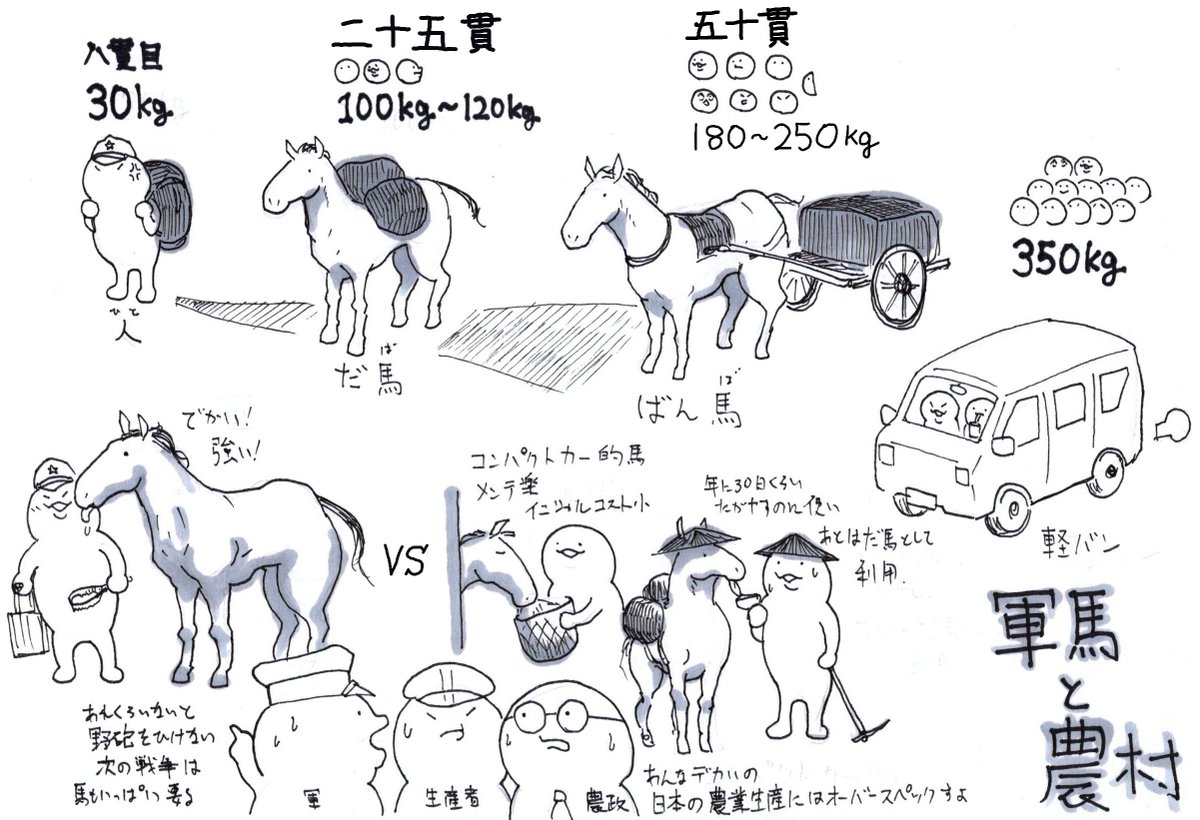 八貫目
30kg
二十五貫
100kg~120kg
五十貫
180~250kg
350kg
ひと
人
ば
だ馬
ば
ばん馬
軽バン
でかい!
強い!
VS
コンパクトカー的馬
メンテ楽
イニシャルコスト小
年に30日くらい
たがやすのに使い
あとはだ馬として
利用.
軍馬
と
農村
あんくらいないと
野砲をひけない
次の戦争は
馬もいっぱい要る
軍
生産者
農政
あんなデカいの
日本の農業生産にはオーバースペックすよ